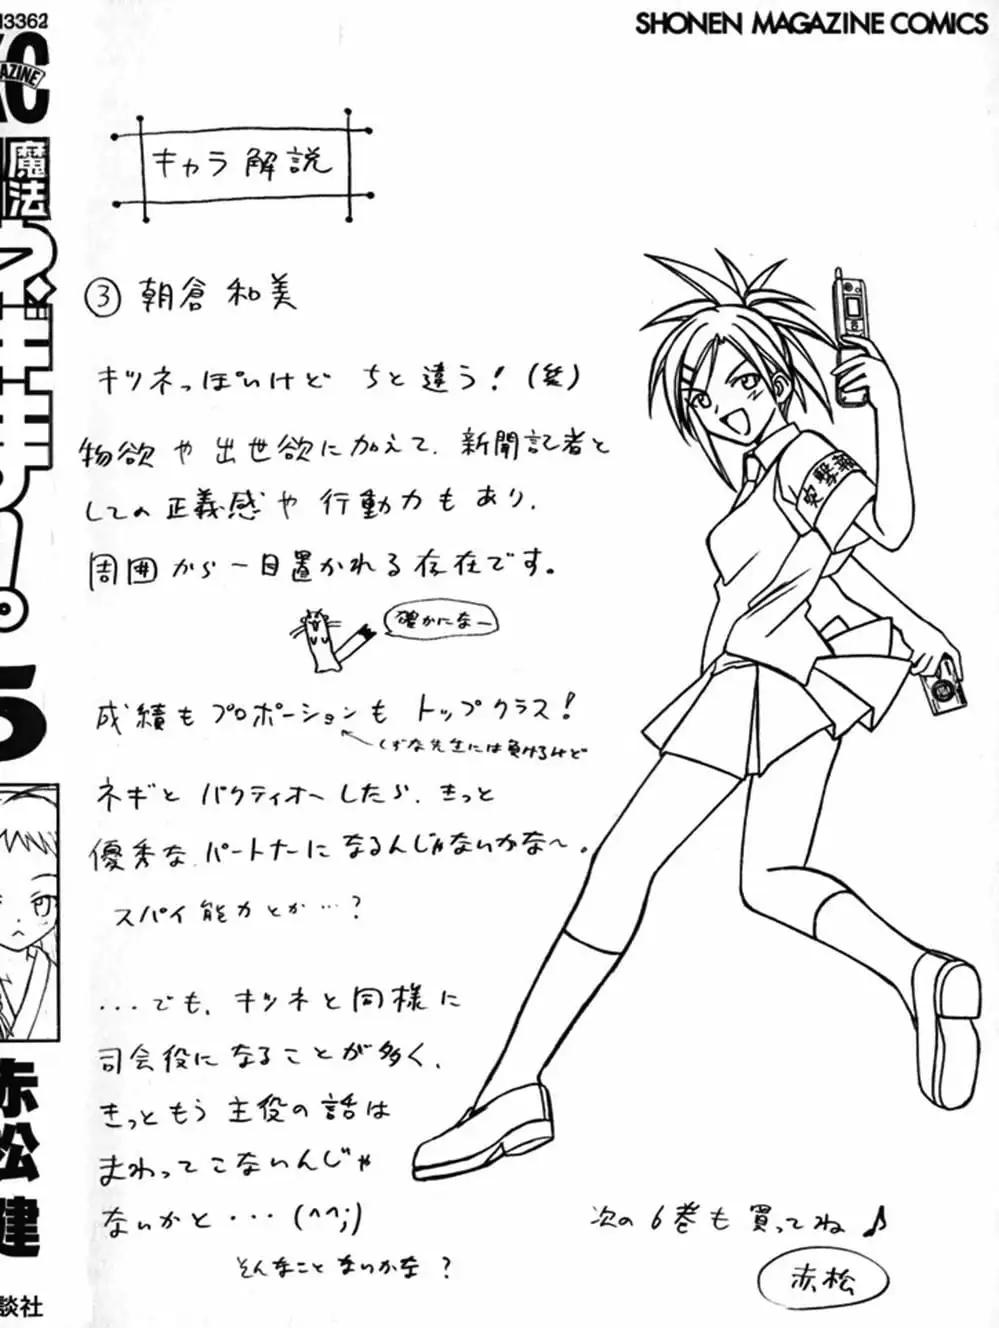 SHONEN MAGAZINE COMICS
13362
KC
魔法
ネギま!。
5
赤松健
談社
キャラ解説
③ 朝倉 和美
キツネっぽいけど ちと違う!(笑)
物欲や出世欲に加えて、新聞記者と
しての正義感や行動力もあり、
周囲から一目置かれる存在です。
確かになー
成績もプロポーションも トップクラス!
しずな先生には負けるけど
ネギと パクティオーしたら、きっと
優秀な パートナーになるんじゃないかな〜。
スパイ能力とか…?
...でも、キツネと同様に
司会役になることが多く、
きっともう主役の話は
まわってこないんじゃ
ないかと・・・(^^;)
そんなことないかな?
突撃報
次の6巻も買ってね♪
赤松